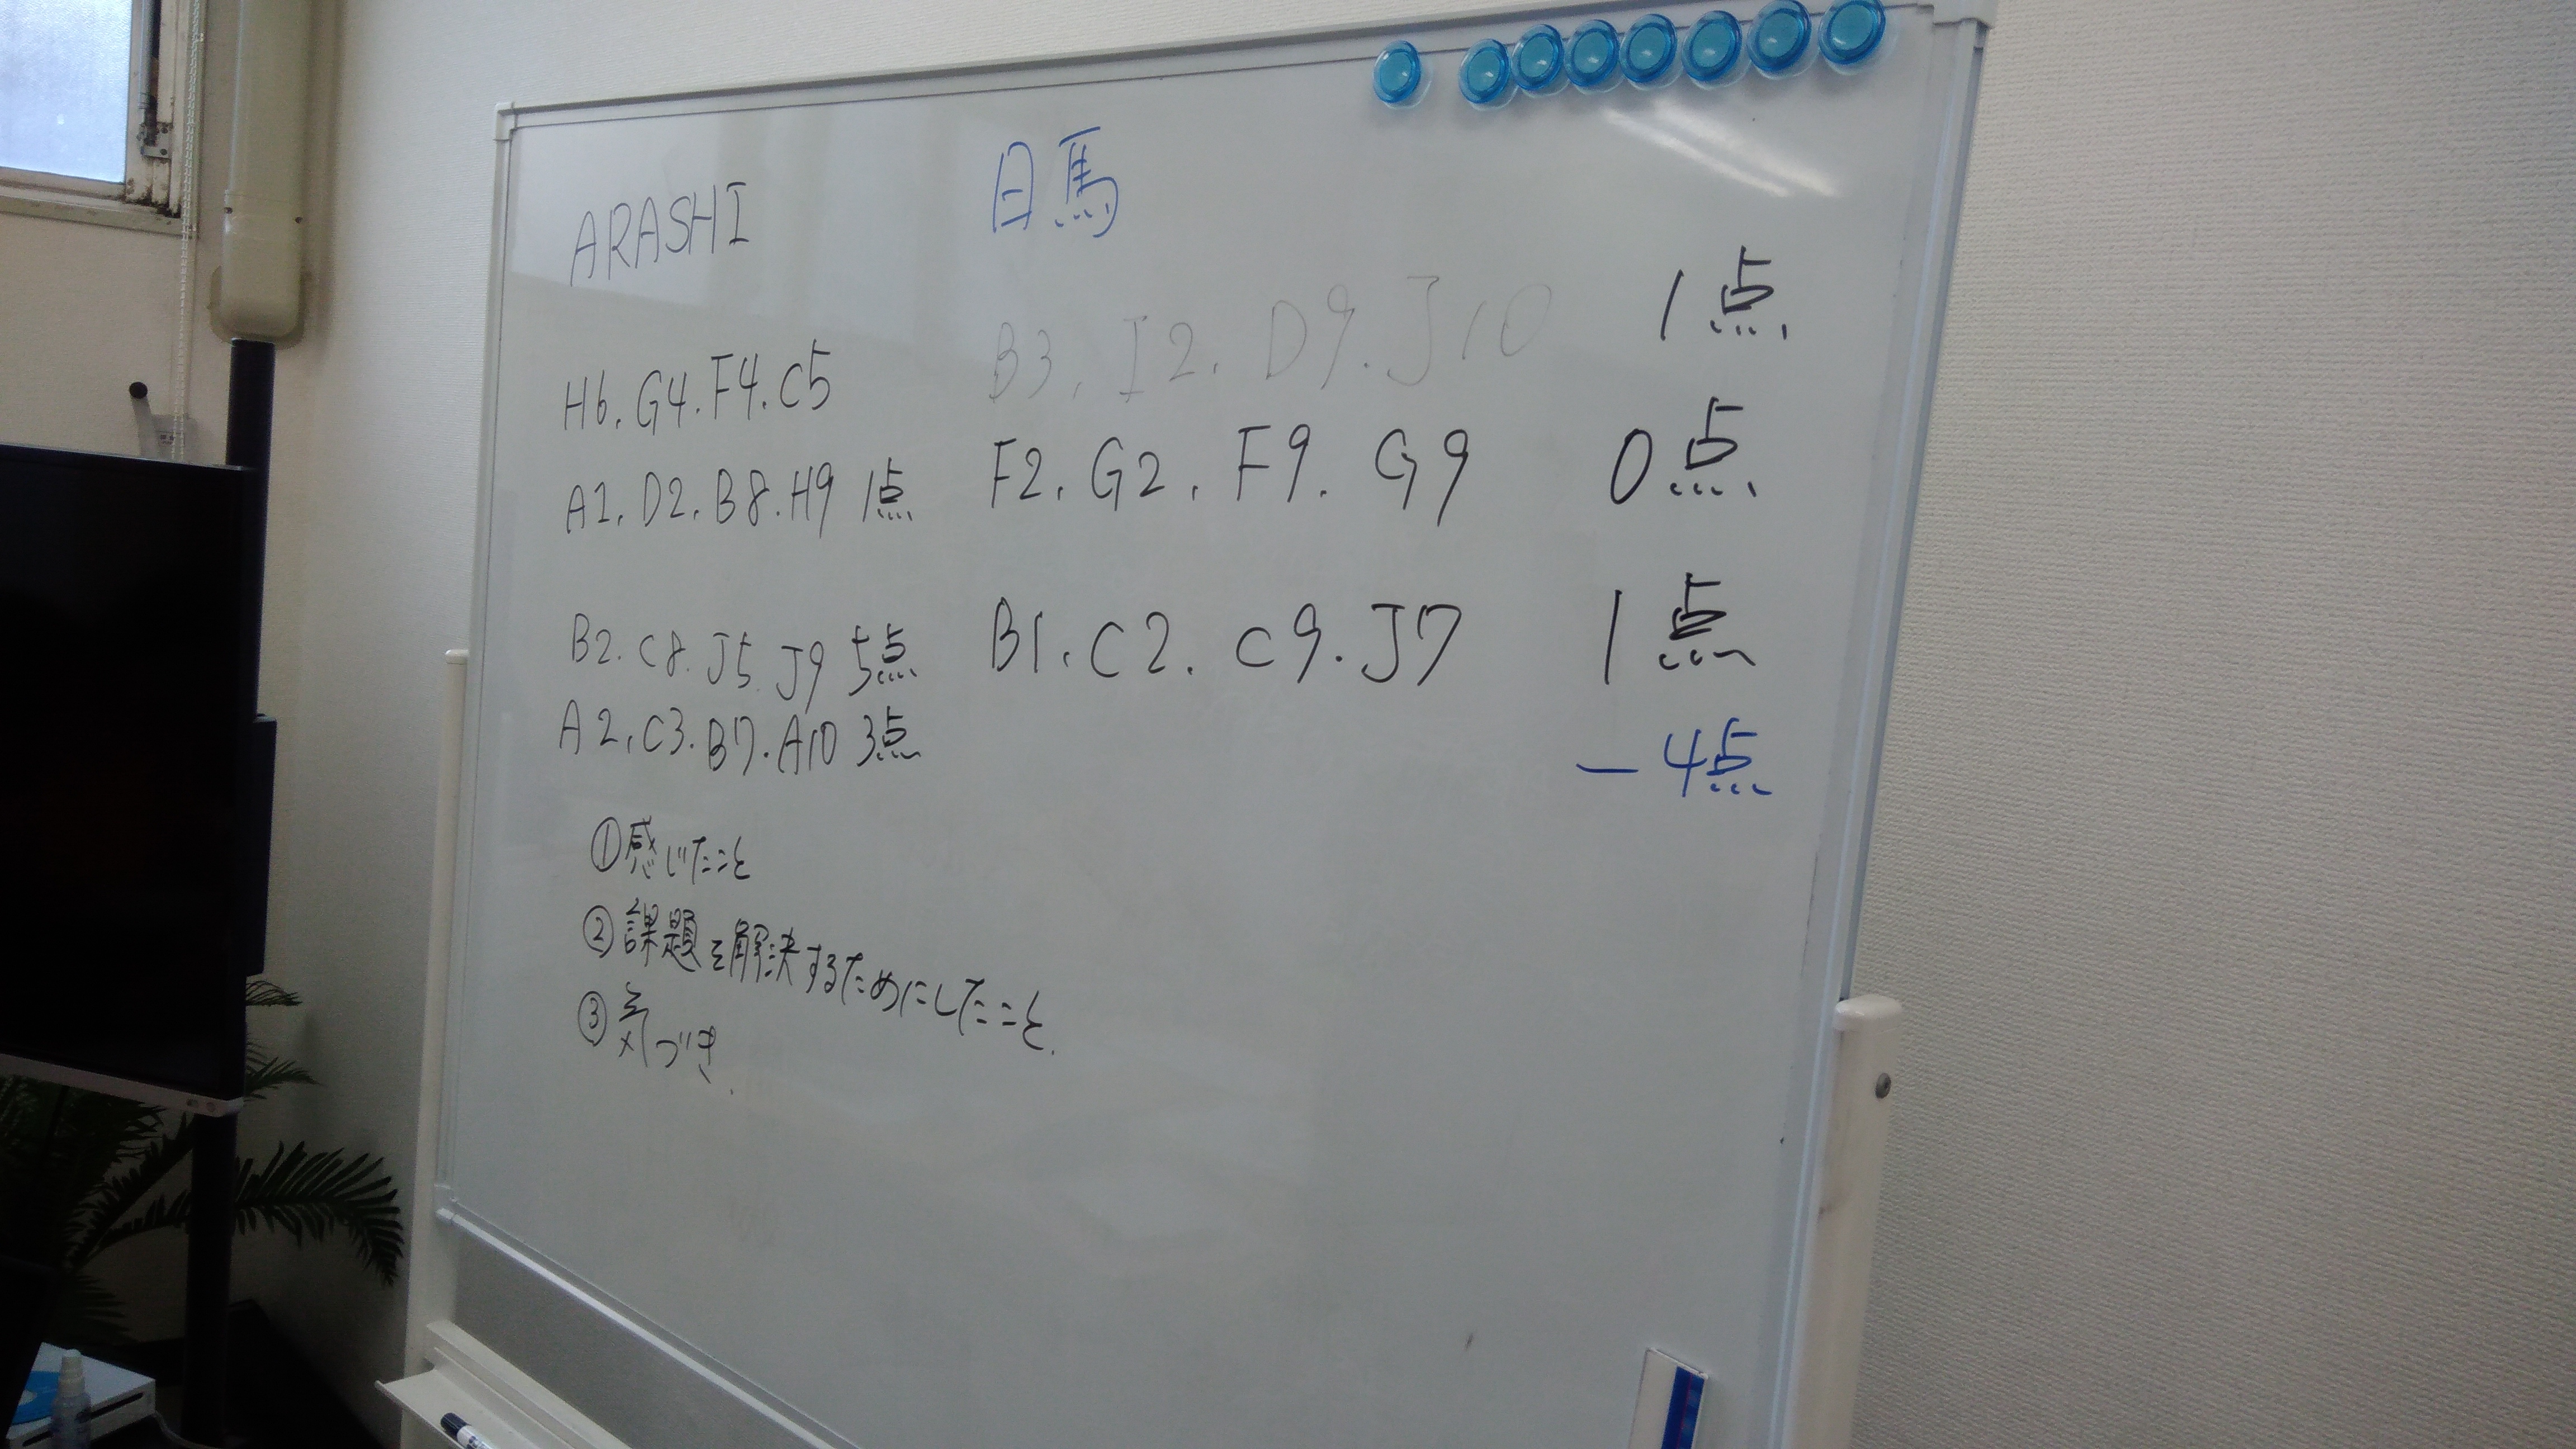 ARASHI
H6.G4.F4.C5
A1.D2.B8.H9 1点
B2.C8.J5.J9 5点
A2.C3.B7.A10 3点
①感じたこと
②課題を解決するためにしたこと.
③気づき.
日馬
B3.I2.D9.J10 1点
F2.G2.F9.G9 0点
B1.C2.C9.J7 1点
-4点